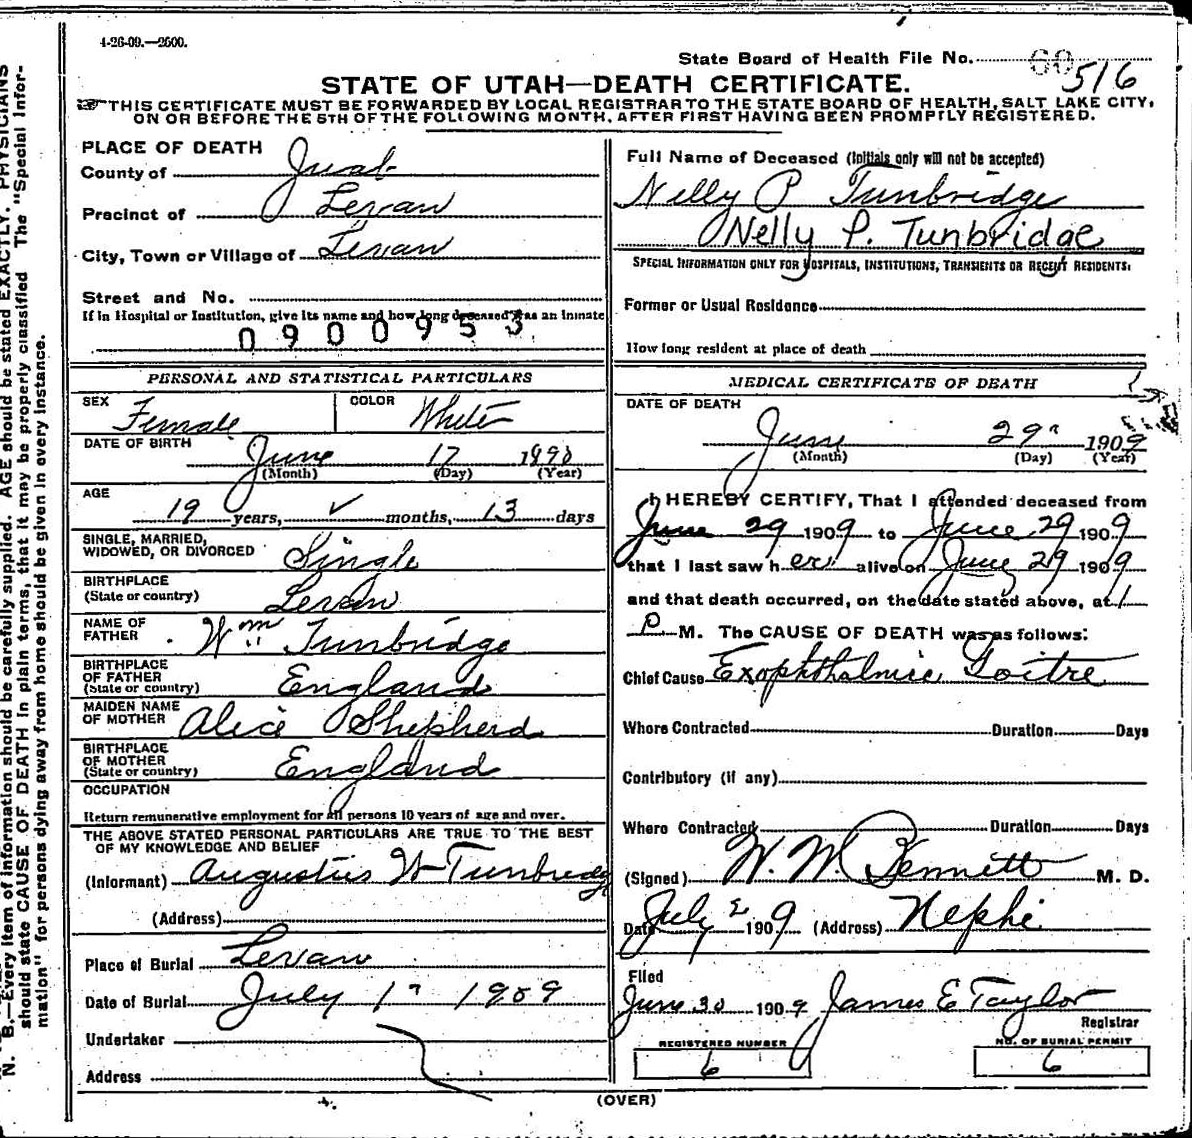 4-26-09.—2500.
State Board of Health File No. 60 516
STATE OF UTAH—DEATH CERTIFICATE.
THIS CERTIFICATE MUST BE FORWARDED BY LOCAL REGISTRAR TO THE STATE BOARD OF HEALTH, SALT LAKE CITY,
ON OR BEFORE THE 5TH OF THE FOLLOWING MONTH, AFTER FIRST HAVING BEEN PROMPTLY REGISTERED.
N. B.—Every item of information should be carefully supplied. AGE should be stated EXACTLY. PHYSICIANS
should state CAUSE OF DEATH in plain terms, that it may be properly classified The "Special Infor-
mation" for persons dying away from home should be given in every instance.
PLACE OF DEATH
County of Juab
Precinct of Levan
City, Town or Village of Levan
Street and No.
If in Hospital or Institution, give its name and how long deceased was an inmate
0900953
PERSONAL AND STATISTICAL PARTICULARS
SEX Female COLOR White
DATE OF BIRTH June 17 1890
(Month) (Day) (Year)
AGE
19 years, ✓ months, 13 days
SINGLE, MARRIED,
WIDOWED, OR DIVORCED Single
BIRTHPLACE
(State or country) Levan
NAME OF
FATHER Wm Tunbridge
BIRTHPLACE
OF FATHER
(State or country) England
MAIDEN NAME
OF MOTHER Alice Shepherd
BIRTHPLACE
OF MOTHER
(State or country) England
OCCUPATION
Return remunerative employment for all persons 10 years of age and over.
THE ABOVE STATED PERSONAL PARTICULARS ARE TRUE TO THE BEST
OF MY KNOWLEDGE AND BELIEF
(Informant) Augustus W Tunbridg
(Address)
Place of Burial Levan
Date of Burial July 1" 1909
Undertaker
Address
Full Name of Deceased (Initials only will not be accepted)
Nelly P Tunbridge
Nelly P. Tunbridge
SPECIAL INFORMATION ONLY FOR HOSPITALS, INSTITUTIONS, TRANSIENTS OR RECENT RESIDENTS.
Former or Usual Residence
How long resident at place of death
MEDICAL CERTIFICATE OF DEATH
DATE OF DEATH
June 29" 1909
(Month) (Day) (Year)
I HEREBY CERTIFY, That I attended deceased from
June 29 1909 to June 29 1909
that I last saw her alive on June 29 1909
and that death occurred, on the date stated above, at 1
P M. The CAUSE OF DEATH was as follows:
Chief Cause Exophthalmic Goitre
Where Contracted Duration Days
Contributory (if any)
Where Contracted Duration Days
(Signed) W. W. Bennett M. D.
Date July 2 1909 (Address) Nephi
Filed
June 30 1909 James E Taylor
Registrar
REGISTERED NUMBER NO. OF BURIAL PERMIT
6 6
(OVER)